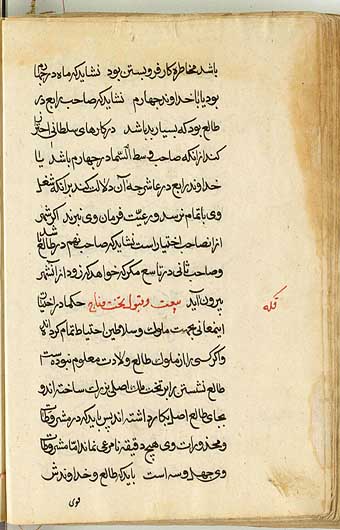 باشد مخاطره کار فرو بستن بود نشاید که ماه در چهارم
بود یا با خداوند چهارم نشاید که صاحب رابع در
طالع بود که بسیار بد باشد در کارهای سلطانی احتراز
کند از آنکه صاحب وسط السما در چهارم باشد یا
خداوند رابع در عاشر چه آن دلالت کند بر آنکه شغل
وی با تمام نرسد و رعیت فرمان وی نبرند اگر شهر
از آن صاحب اختیار است نشاید که صاحب نهم در طالع باشد
و صاحب ثانی در تاسع مگر که خواهد که زود از آن شهر
بیرون آید بیعت و قبول تخت و تاج حکما در اختیار
این معانی جهت ملوک و سلاطین احتیاط تمام کرده اند
و اگر کسی را از ملوک طالع ولادت معلوم نبوده است
طالع نشستن را بر تخت ملک اصلی بزرگ ساخته اند و
بجای طالع اصل بکار داشته اند پس باید که در مشروطات
و محذورات وی هیچ دقیقه نامرعی نماند اما مشروطات
وی چهل و سه است باید که طالع و خداوندش
قوی